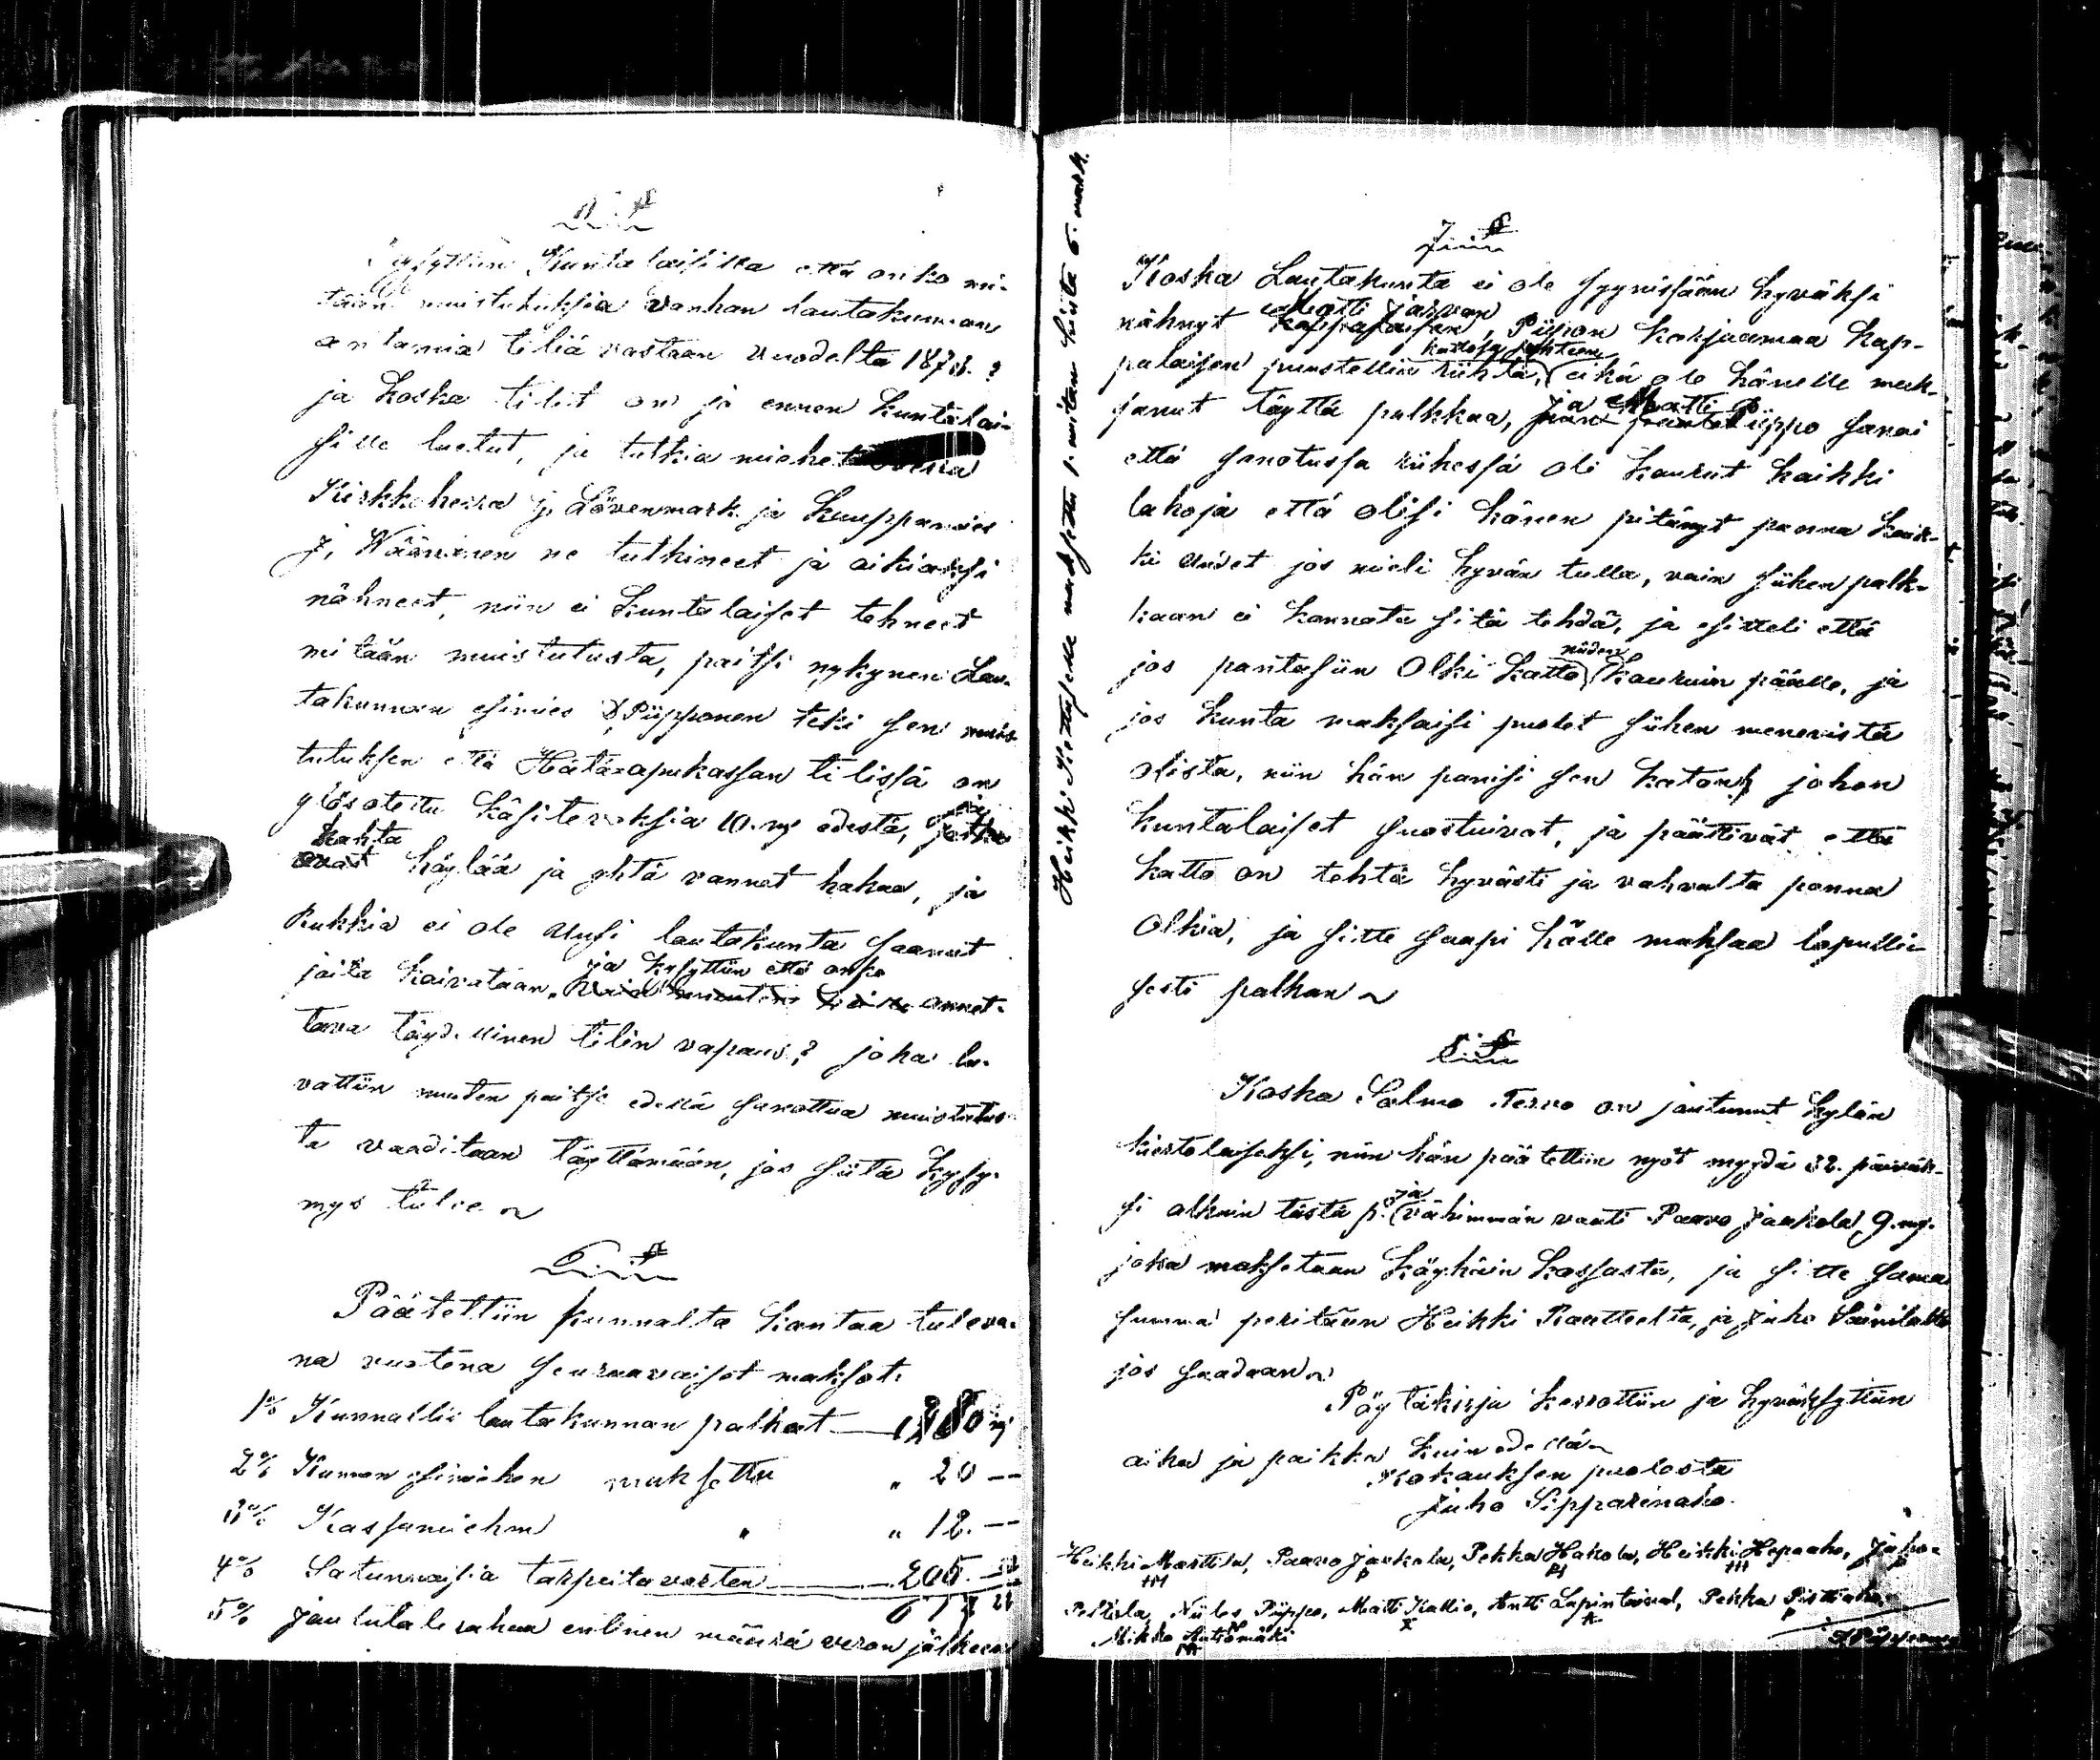 5 §
Kysyttiin Kuntalaisilta että onko mi-
tään muistutuksia vanhan lautakunnan
antamia tiliä vastaan vuodelta 1878. ?
ja koska tilit on jo ennen kuntalai-
sille luetut, ja tutkia miehet
Kirkkoherra J. Lövenmark ja kauppamies
J. Väänänen ne tutkineet ja oikiaksi
nähneet, niin ei kuntalaiset tehneet
mitään muistutusta, paitsi nykynen Lau-
takunnan esimies Piipponen teki sen muis-
tutuksen että Hätäapukassan tilissä on
ylösotettu käsiteoksia 10. my edestä,
kahta höylää ja yhtä vannet hakaa, ja
Rukkia ei ole Uusi lautakunta saanut
joita kaivataan. ja kysyttiin että onko annet-
tava täydellinen tilin vapaus? joka lu-
vattiin muuten paitsi edellä sanottua muistutus-
ta vaaditaan täyttämään, jos siitä kysy-
mys tulee
6 §
Päätettiin kunnalta kantaa tuleva-
na vuotena seuraavaiset maksot.
1o/o Kunnallis lautakunnan palkat 380 my
2o/o Kunnan esimiehen maksettu „ 20 —
3o/o Kassamiehen „ „ 12. —
4o/o Satunnaisia tarpeita varten 205.
5o/o jauluta le rahaa enlinen määrä veron jälkeen
Heikki maksettu 1. mitan hinta 6. mark.
7 §
Koska Lautakunta ei ole syynissään hyväksi
nähnyt Matti Järvan, Piipon korjaamaa Kap-
palaisen puustellin riihtä, katosa suhteen eikä ole hänelle mak-
sanut täyttä palkkaa, ja Matti Piippo sanoi
että sanotussa riihessä oli kaurut kaikki
lahoja että olisi hänen pitänyt panna kaik-
ki Uudet jos mieli hyvän tulla, vain siihen palk-
kaan ei kannata sitä tehdä, ja esitteli että
jos pantasiin Olki katto niiden kauruin päälle, ja
jos kunta maksaisi puolet siihen menevistä
olista, niin hän panisi sen katon johon
kuntalaiset suostuivat, ja päättivät että
katto on tehtä hyvästi ja vahvalta panna
Olkia, ja sitte saapi hälle maksaa lopulli-
sesti palkan
8 §
Koska Salmo Tervo on joutunut kylän
kiertolaiseksi, niin hän päätettiin nyöt myydä 32. päiväk-
si alkain tästä p. ja vähimmän vaati Paavo Jaakola, 9. my.
joka maksetaan köyhäin kassasta, ja sitte sama
summa peritään Heikki Rautteelta, ja Juho
jos saadaan
Pöytäkirja kerrottiin ja hyväksyttiin
aika ja paikka kuin edellä
Kokouksen puolesta
Juho Sipparinaho.
Heikki Marttila, Paavo Jaakola, Pekka Hakola, Heikki Hepoaho, Juho
HM P PH HH
Peltola, Niiles Piippo, Matti Kallio, Antti Lapintaival, Pekka
Mikko Autiomäki